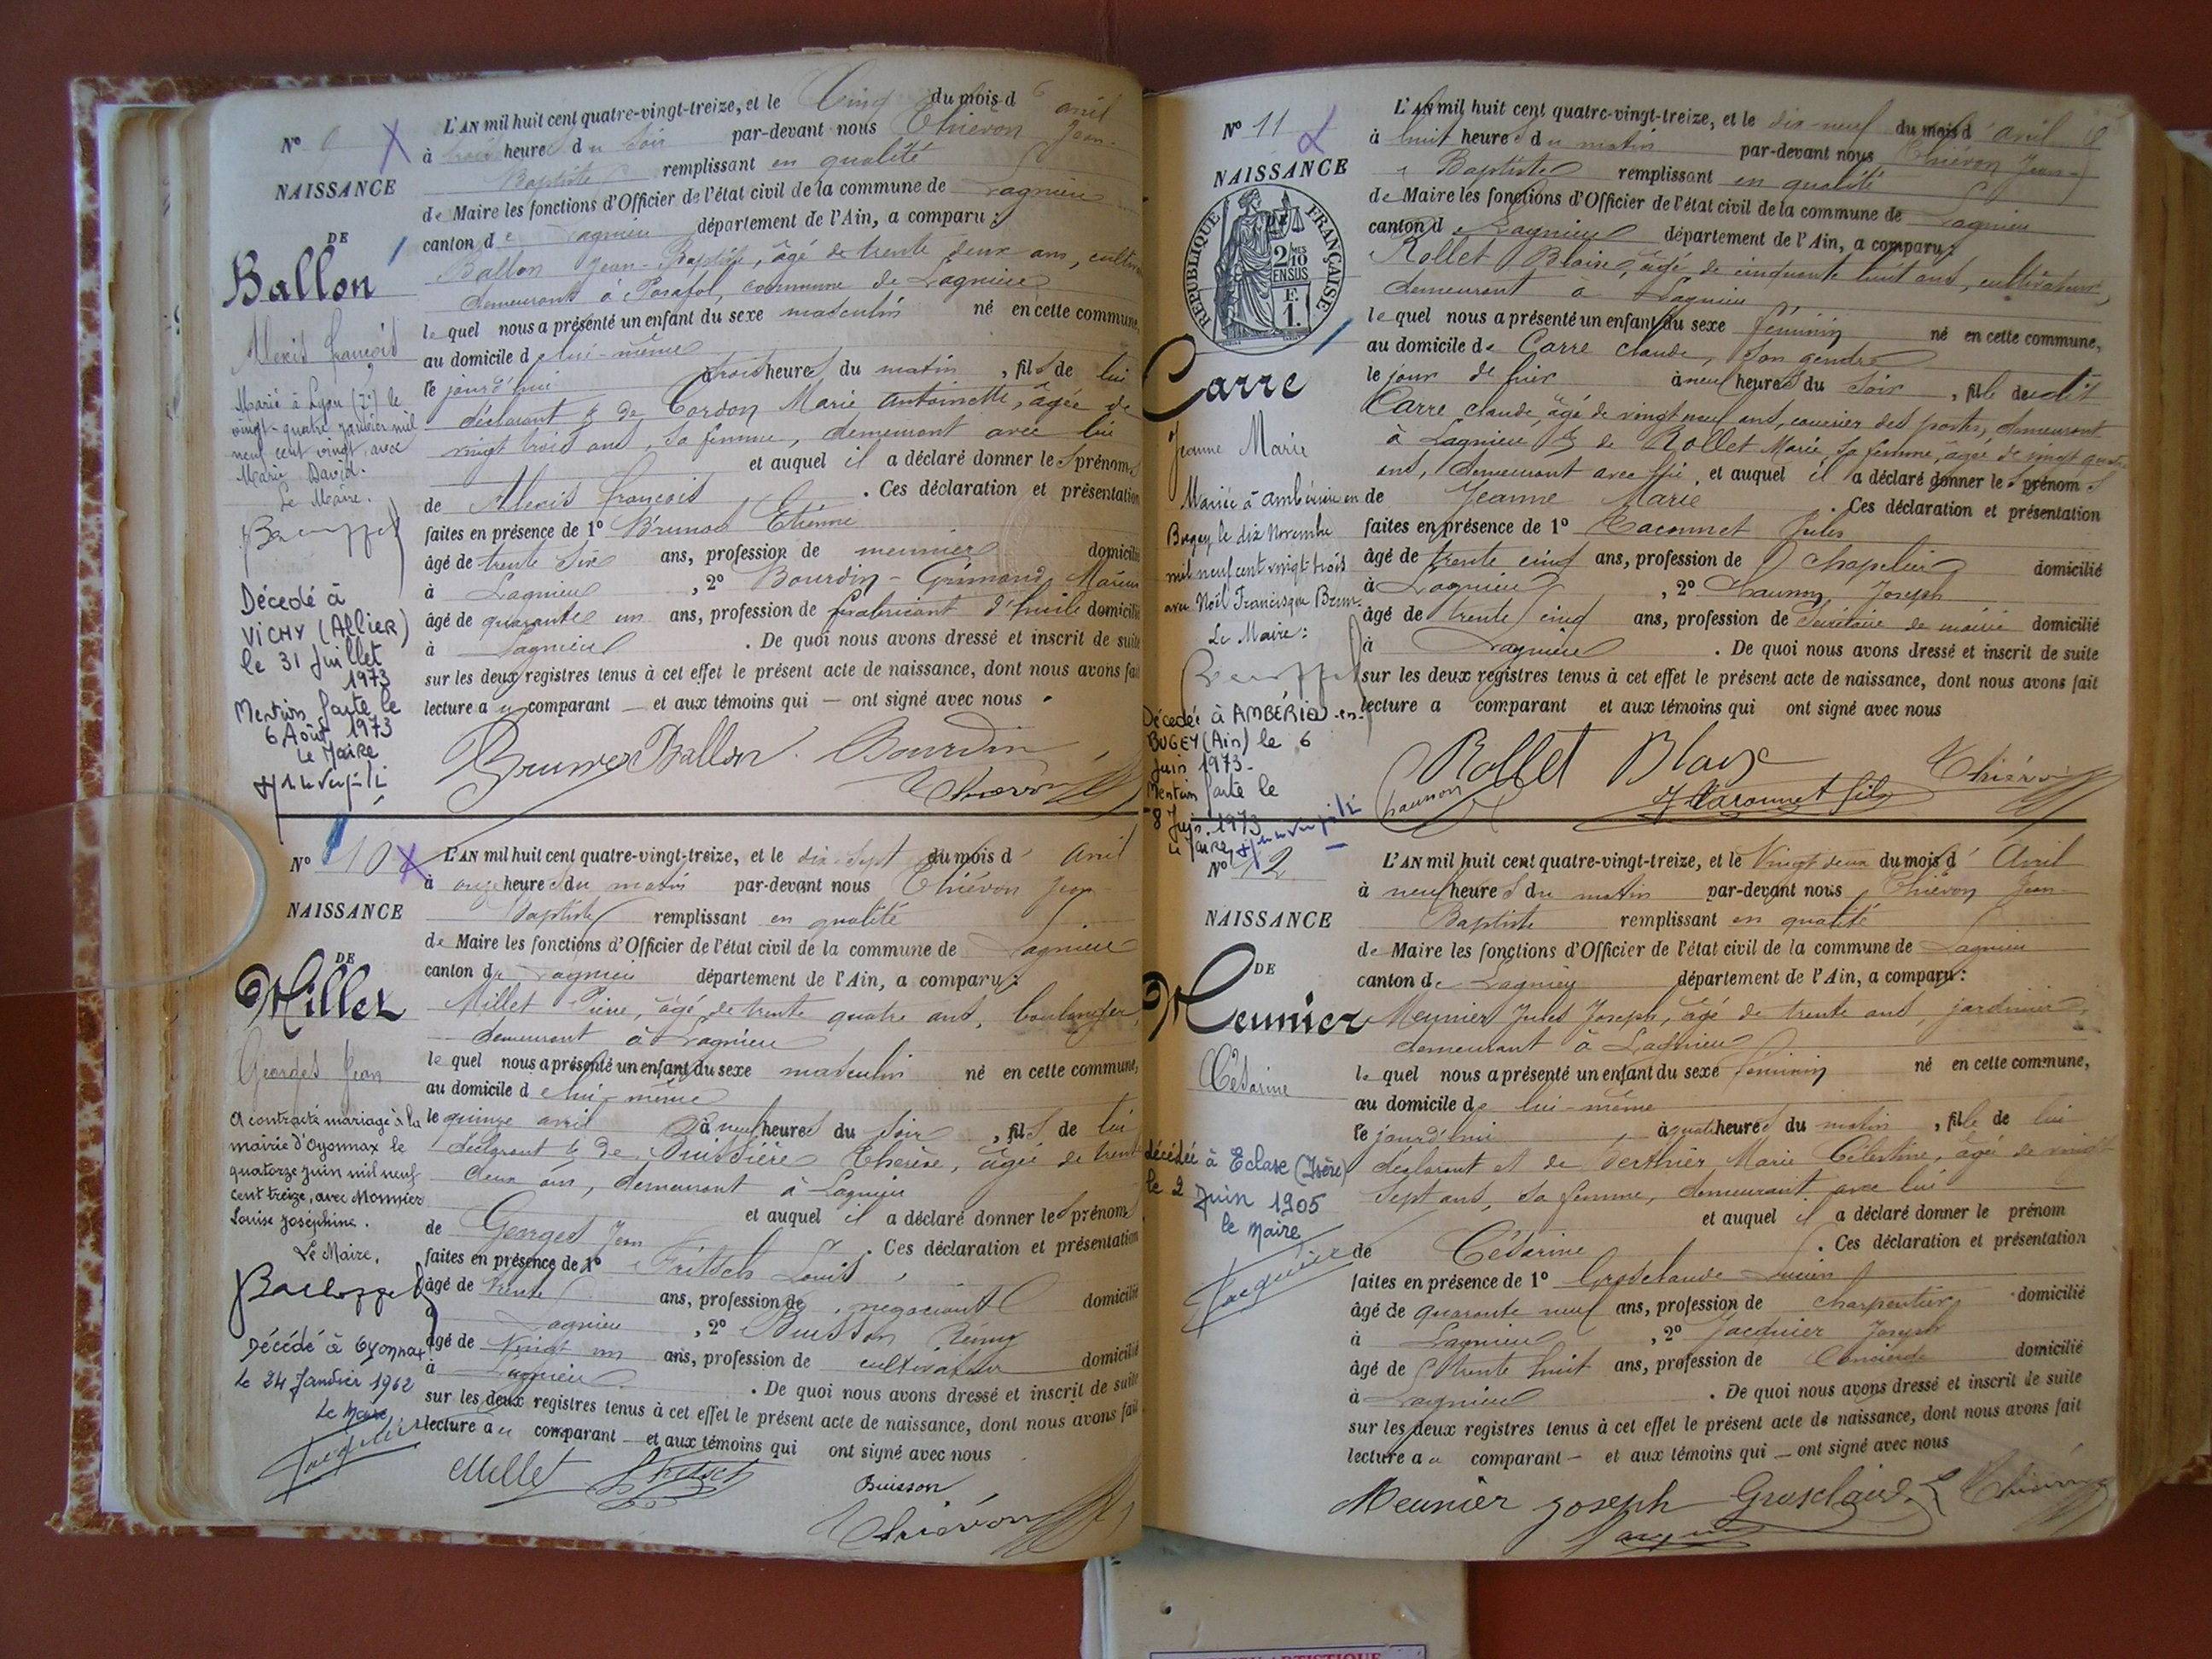 L'AN mil huit cent quatre-vingt-treize, et le Cinq du mois d avril
à trois heures du soir par-devant nous Thiévon Jean-
Baptiste remplissant en qualité
de Maire les fonctions d'Officier de l'état civil de la commune de Lagnieu
canton de Lagnieu département de l'Ain, a comparu :
Ballon Jean-Baptiste, âgé de trente deux ans,
demeurant à Posafol, commune de Lagnieu
lequel nous a présenté un enfant du sexe masculin né en cette commune,
au domicile de lui-même
le jourd'hui à trois heures du matin, fils de lui
déclarant & de Cordon Marie Antoinette, âgée de
vingt trois ans, sa femme, demeurant avec lui
et auquel il a déclaré donner les prénoms
de Alexis François . Ces déclaration et présentation
faites en présence de 1º Brunod Etienne
âgé de trente six ans, profession de meunier domicilié
à Lagnieu , 2º Bourdin-Grimaud
âgé de quarante un ans, profession de fabricant d'huile domicilié
à Lagnieu . De quoi nous avons dressé et inscrit de suite
sur les deux registres tenus à cet effet le présent acte de naissance, dont nous avons fait
lecture au comparant — et aux témoins qui — ont signé avec nous .
Ballon Bourdin
Thiévon
Nº
NAISSANCE
DE
Ballon
Alexis François
Marié à Lyon (7e) le
vingt-quatre janvier mil
neuf cent vingt, avec
Marie David.
Le Maire.
Décedé à
VICHY (ALLIER)
le 31 Juillet
1973
Mention faite le
6 Août 1973
Le Maire
Nº 10
NAISSANCE
DE
Millet
Georges Jean
A contracté mariage à la
mairie d'Oyonnax le
quatorze juin mil neuf
cent treize, avec Monnier
Louise Joséphine.
Le Maire,
Décédé à Oyonnax
le 24 Janvier 1962
Le Maire
L'AN mil huit cent quatre-vingt-treize, et le dix-sept du mois d' Avril
à onze heures du matin par-devant nous Thiévon Jean-
Baptiste remplissant en qualité
de Maire les fonctions d'Officier de l'état civil de la commune de Lagnieu
canton de Lagnieu département de l'Ain, a comparu :
Millet Pierre, âgé de trente quatre ans, boulanger,
demeurant à Lagnieu
lequel nous a présenté un enfant du sexe masculin né en cette commune,
au domicile de lui-même
le quinze avril à neuf heures du soir, fils de lui
déclarant & de Buissière Thérèse, âgée de trente
deux ans, demeurant à Lagnieu
et auquel il a déclaré donner les prénoms
de Georges Jean . Ces déclaration et présentation
faites en présence de 1º Fritsch Louis
âgé de trente ans, profession de négociant domicilié
à Lagnieu , 2º Buisson Rémy
âgé de Vingt un ans, profession de cultivateur domicilié
à Lagnieu . De quoi nous avons dressé et inscrit de suite
sur les deux registres tenus à cet effet le présent acte de naissance, dont nous avons fait
lecture au comparant — et aux témoins qui ont signé avec nous
Millet Fritsch Buisson
Thiévon
Nº 11
NAISSANCE
RÉPUBLIQUE FRANÇAISE
2/10 MES
EN SUS
F.
1.
Carre
Jeanne Marie
Mariée à Ambérieu en
Bugey le dix Novembre
mil neuf cent vingt-trois
avec Noël Francisque Brun.
Le Maire :
Décedée à AMBÉRIEU-en-
BUGEY (Ain) le 6
Juin 1973-
Mention faite le
8 Juin 1973
Le Maire
L'AN mil huit cent quatre-vingt-treize, et le dix-neuf du mois d' avril
à huit heures du matin par-devant nous Thiévon Jean-
Baptiste remplissant en qualité
de Maire les fonctions d'Officier de l'état civil de la commune de Lagnieu
canton de Lagnieu département de l'Ain, a comparu :
Rollet Blaise, âgé de cinquante huit ans, cultivateur,
demeurant à Lagnieu
lequel nous a présenté un enfant du sexe féminin né en cette commune,
au domicile de Carre Claude, son gendre
le jour de hier à neuf heures du soir, fille dudit
Carre Claude, âgé de vingt neuf ans, courrier des postes, demeurant
à Lagnieu & de Rollet Marie, sa femme, âgée de vingt quatre
ans, demeurant avec lui, et auquel il a déclaré donner les prénoms
de Jeanne Marie . Ces déclaration et présentation
faites en présence de 1º Caconnet Jules
âgé de trente cinq ans, profession de chapelier domicilié
à Lagnieu , 2º Chaunon Joseph
âgé de trente cinq ans, profession de Secrétaire de mairie domicilié
à Lagnieu . De quoi nous avons dressé et inscrit de suite
sur les deux registres tenus à cet effet le présent acte de naissance, dont nous avons fait
lecture a comparant et aux témoins qui ont signé avec nous
Rollet Blaise Thiévon
Chaunon J Caconnet fils
Nº 12
NAISSANCE
DE
Meunier
Césarine
décédée à Eclose (Isère)
le 2 Juin 1905
le Maire
Jacquier
L'AN mil huit cent quatre-vingt-treize, et le Vingt deux du mois d' Avril
à neuf heures du matin par-devant nous Thiévon Jean-
Baptiste remplissant en qualité
de Maire les fonctions d'Officier de l'état civil de la commune de Lagnieu
canton de Lagnieu département de l'Ain, a comparu :
Meunier Jules Joseph, âgé de trente ans, jardinier,
demeurant à Lagnieu
lequel nous a présenté un enfant du sexe féminin né en cette commune,
au domicile de lui-même
le jourd'hui à quatre heures du matin, fille de lui
déclarant et de Berthier Marie Célestine, âgée de vingt
sept ans, sa femme, demeurant avec lui
et auquel il a déclaré donner le prénom
de Césarine . Ces déclaration et présentation
faites en présence de 1º Grosclaude Lucien
âgé de quarante neuf ans, profession de charpentier domicilié
à Lagnieu , 2º Jacquier Joseph
âgé de trente huit ans, profession de Concierge domicilié
à Lagnieu . De quoi nous avons dressé et inscrit de suite
sur les deux registres tenus à cet effet le présent acte de naissance, dont nous avons fait
lecture au comparant — et aux témoins qui — ont signé avec nous
Meunier joseph Grosclaude Thiévon